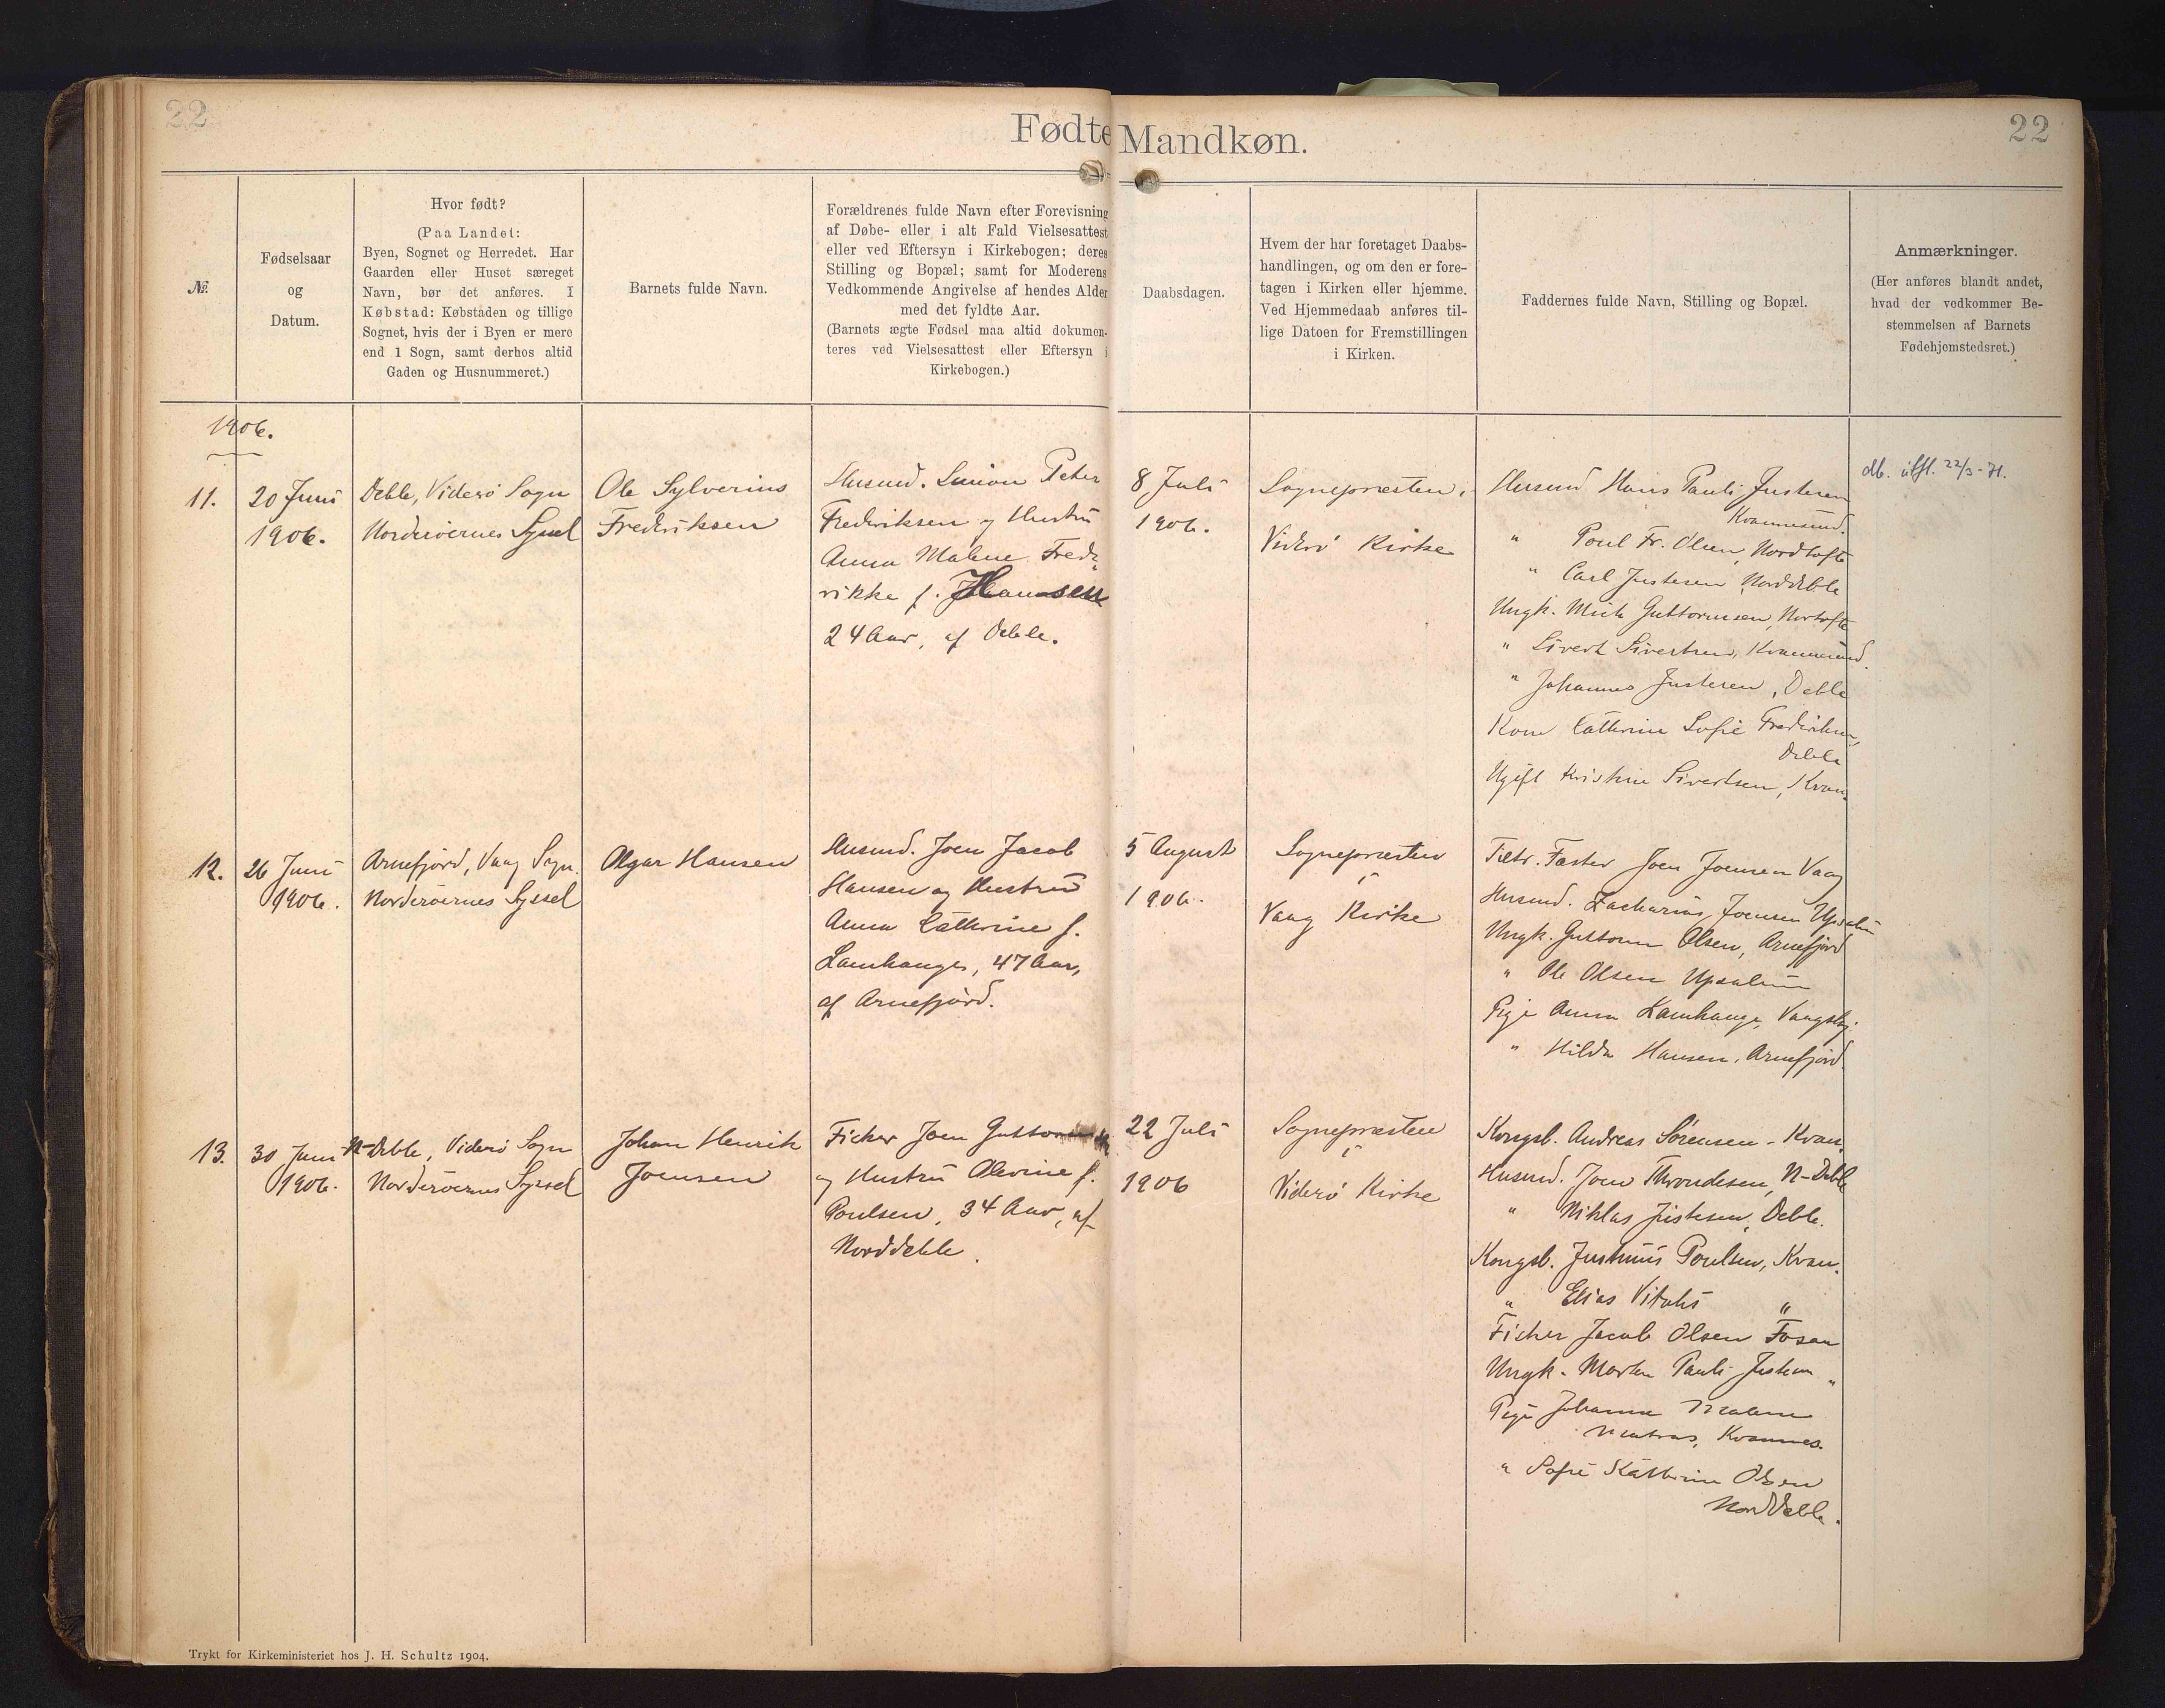 22
Fødte
Mandkøn.
22
№
Fødselsaar
og
Datum.
Hvor født?
(Paa Landet:
Byen, Sognet og Herredet. Har
Gaarden eller Huset særeget
Navn, bør det anføres. I
Købstad: Købstaden og tillige
Sognet, hvis der i Byen er mere
end 1 Sogn, samt derhos altid
Gaden og Husnummeret.)
Barnets fulde Navn.
Forældrenes fulde Navn efter Forevisning
af Døbe- eller i alt Fald Vielsesattest
eller ved Eftersyn i Kirkebogen; deres
Stilling og Bopæl; samt for Moderens
Vedkommende Angivelse af hendes Alder
med det fyldte Aar.
(Barnets ægte Fødsel maa altid dokumen-
teres ved Vielsesattest eller Eftersyn i
Kirkebogen.)
Daabsdagen.
Hvem der har foretaget Daabs-
handlingen, og om den er fore-
tagen i Kirken eller hjemme.
Ved Hjemmedaab anføres til-
lige Datoen for Fremstillingen
i Kirken.
Faddernes fulde Navn, Stilling og Bopæl.
Anmærkninger.
(Her anføres blandt andet,
hvad der vedkommer Be-
stemmelsen af Barnets
Fødehjemstedsret.)
1906.
11.
20 Juni
1906.
Deble, Viderø Sogn
Norderøernes Syssel
Ole Sylverius
Frederiksen
Husmd. Simon Peter
Frederiksen og Hustru
Anna Malene Fred-
rikke f. Hansen
24 Aar, af Deble.
8 Juli
1906.
Sognepræsten i
Viderø Kirke
Husmd Hans Pauli Justesen
Kvannesund.
" Poul Fr. Olsen, Nordtofte
" Carl Justesen, Norddeble
Ungk. Guttormsen, Nortofte
" Sivert Sivertsen, Kvannesund.
" Johannes Justesen, Deble
Kone Cathrine Sofie Frederiksen,
Deble
Ugift Kristine Sivertsen, Kvan.
db. utfl. 22/3-71.
12.
26 Juni
1906.
Arnefjord, Vaag Sogn.
Norderøernes Syssel
Olgar Hansen
Husmd. Joen Jacob
Hansen og Hustru
Anna Cathrine f.
Lamhauge, 47 Aar,
af Arnefjord.
5 August
1906.
Sognepræsten
i
Vaag Kirke
Joen Joensen Vaag
Husmd. Zacharias Joensen Upsalum
Ungk. Guttorm Olsen, Arnefjord
" Ole Olsen Upsalum
Pige Anna Lamhauge, Vaagsbj.
" Hilda Hansen, Arnefjord.
13.
30 Juni
1906.
N-Deble, Viderø Sogn
Norderøernes Syssel
Johan Henrik
Joensen
Fisker Joen
og Hustru Olevine f.
Poulsen, 34 Aar, af
Norddeble.
22 Juli
1906
Sognepræsten
i
Viderø Kirke
Kongsb. Andreas Sörensen - Kvan.
Husmd. Joen Throndesen, N-Deble
" Niklas Justesen, Deble.
Kongsb. Justinus Poulsen, Kvan.
" Elias Vitalis "
Fisker Jacob Olsen Fosaa
Ungk. Morten Pauli Justesen "
Pige Johanne Malene
Kvannes.
" Sofie Kathrine Olsen
Norddeble.
Trykt for Kirkeministeriet hos J. H. Schultz 1904.